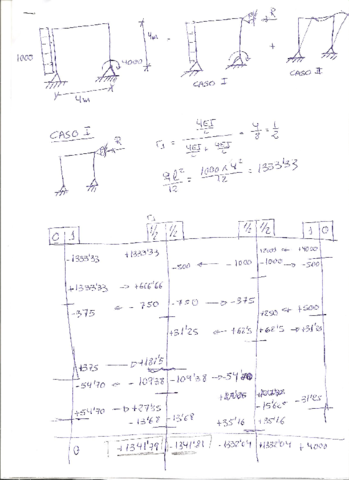 R
1000
4000
4m
=
+
4m
CASO I
CASO II
CASO I
R
r₁ = 4EI/L / (4EI/L + 4EI/L) = 4/8 = 1/2
ql²/12 = 1000 x 4²/12 = 1333'33
0 1 1/2 1/2 1/2 1/2 1 0
-1333'33 +1333'33 +4000
-500 ← -1000 -1000 → -500
+1333'33 → +666'66
-375 ← -750 -750 → -375
+250 +500
+31'25
+375 → +187'5
-54'70 ← -109'38 -109'38 → -54'70
-31'25
+54'70 → +27'35
-13'67 -13'68 +35'16 +35'16
0 +1341'79 -1341'81 -1332'04 +1332'04 +4000